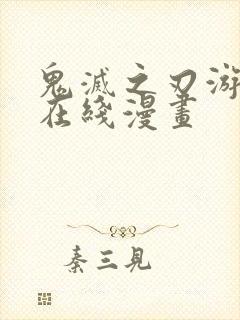 鬼滅之刃游
在綫漫畫
秦三見